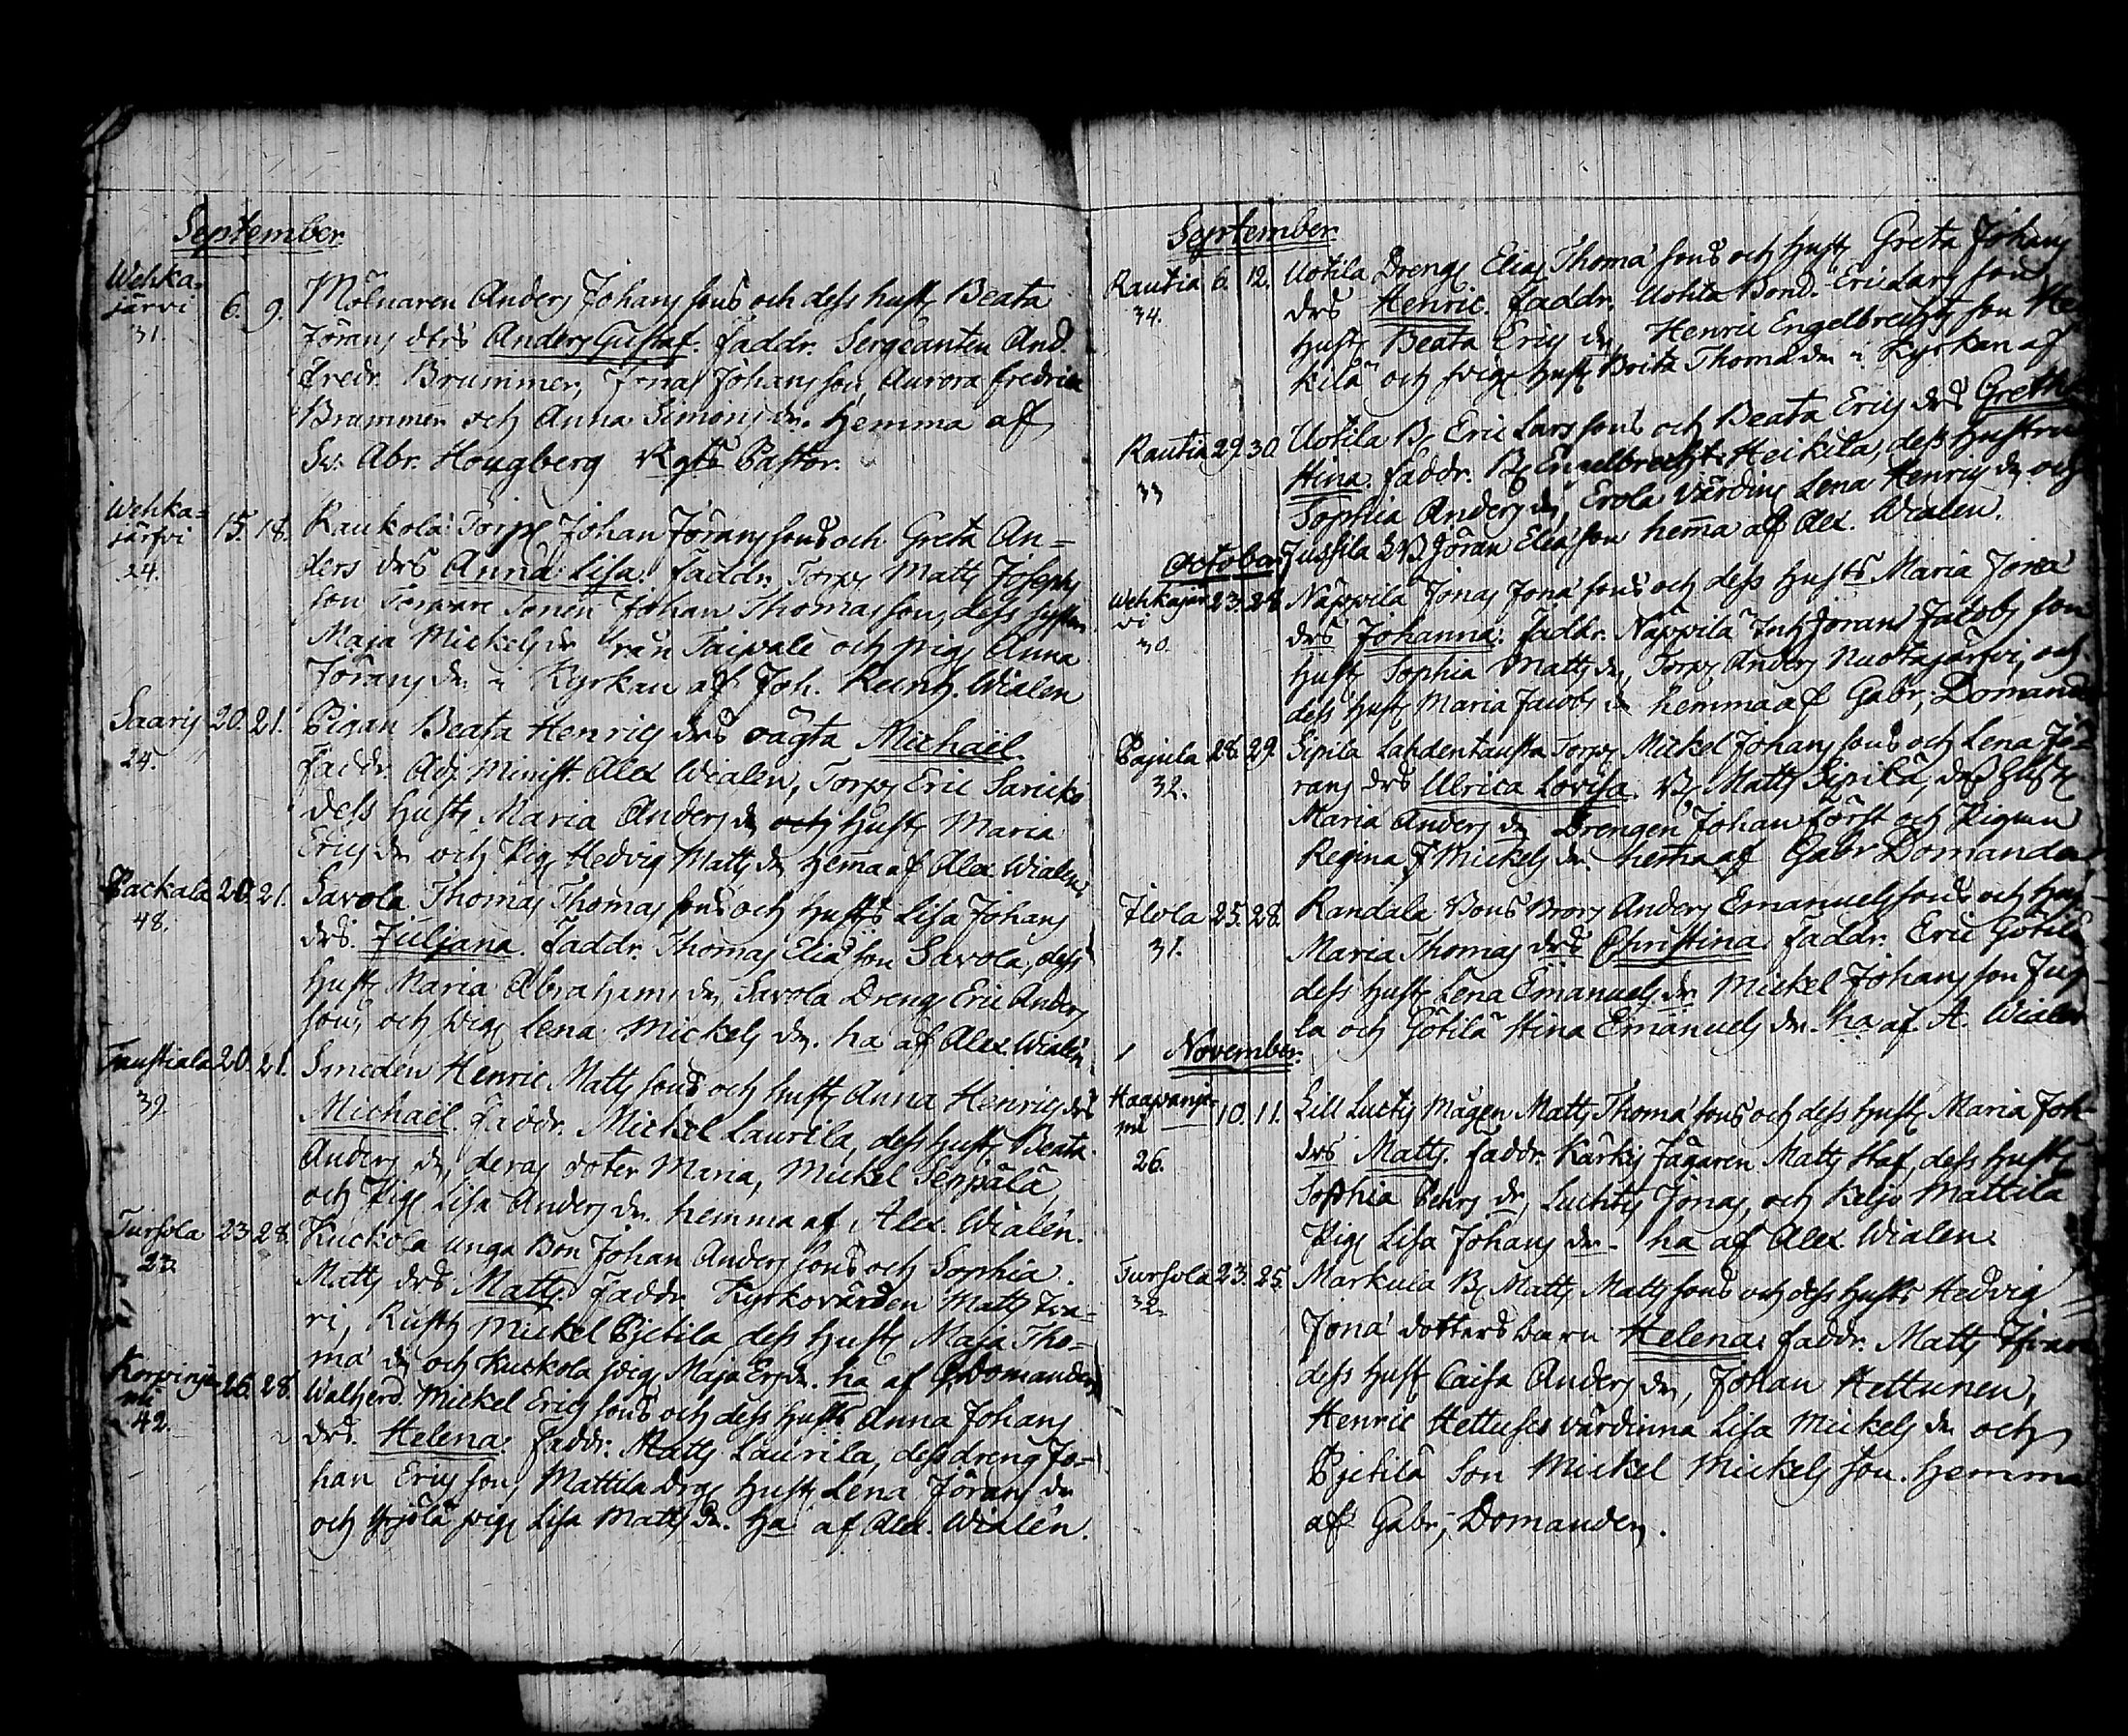 September
Wehka-
järvi 6. 9. Mölnaren Anders Johans sons och dess hust. Beata
31. Jörans dtrs Anders Gustaf. Faddr. Sergeanten And.
Fredr. Brummer, Jonas Johans son, Aurora Fredrica
Brummer och Anna Simons dr. Hemma af
Sv. Abr. Hougberg Rgts Pastor.
Wehka=
järfvi 15. 18. Kaukola Torp. Johan Jörans sons och Greta An=
24. ders drs Anna Lisa. Faddr. Torp. Matts Josephs
son Torpare Sonen Johan Thomas son, dess syster
Maja Mickels dr från Taipale och pig. Anna
Jörans dr i Kyrkan af Joh. Reinh. Wialen
Saaris 20. 21. Pigan Beata Henrics drs oägta Michaël.
24. Faddr. Adj. Minist. Alex Wialen, Torp. Eric Sariko
dess hust. Maria Anders dr och hust. Maria
Erics dr och Pig. Hedvig Matts dr hema af Alex Wialen
Packala 20. 21. Savola Thomas Thomas sons och hust's Lisa Johans
48. drs. Juljana. Faddr. Thomas Elia son Savola, dess
hust. Maria Abrahams dr, Savola Dreng. Eric Anders
son, och pig. Lena Mickels dr. ha af Alex Wialén.
Taustiala 20. 21. Smeden Henric Matts sons och hust. Anna Henrics drs
39. Michaël. Faddr. Mickel Laurila, dess hust. Beata
Anders dr, deras doter Maria, Mickel Seppälä,
och Pig. Lisa Anders dr. hemma af Alex. Wialén.
Tursola 23. 28. Kuckola unga Bon. Johan Anders sons och Sophia
23. Matts drs Matts. Faddr. Kyrkovärden Matts
ri, Rusth. Mickel Pjetila, dess hust. Maja Tho=
ma dr och Kuckola pig. Maja Ers dr. ha af G. Domander
Korpinje-
mi 26. 28. Walherd. Mickel Erics sons och dess hust's Anna Johans
42. drs. Helena. Faddr. Matts Laurila, dess dreng Jo=
han Erics son, Mattila Drg. hust. Lena Jörans dr
och Yrjölä pig. Lisa Matts dr. ha af Alex. Wialén.
September
Rautia 6. 12. Uotila Dreng. Elias Thoma sons och hust. Greta Johans
34. drs Henric. Faddr. Uotila Bond. Eric Lars son,
hust. Beata Erics dr, Henric Engelbrechts son He
kilä och pig. hust. Brita Thoma dr i Kyrkan af
Rautia 29. 30. Uotila B. Eric Lars sons och Beata Erics drs Gretha
33 Stina. Faddr. B. Engelbrecht Heikila, dess hustru
Sophia Anders dr, Erola värdin. Lena Henrics dr och
Jussila B. Jöran Elia son hema af Alex. Wialen.
October
Wehkajär-
vi 23. 24. Näppilä Jonas Jona sons och dess hust's Maria Jona
30. drs Johanna. Faddr. Näppilä Inh. Jöran Jacobs son
hust. Sophia Matts dr, Torp. Anders Nuotajärfvi, och
dess hust. Maria Jacobs dr hemma af Gabr. Domander
Pajula 28. 29. Sipilä Lahdentausta Torp. Mickel Johans sons och Lena Jö=
32. rans drs Ulrica Lovisa. B. Matts Sipilä, dess hust.
Maria Anders dr, Drengen Johan Först och Pigan
Regina Mickels dr. hema af Gabr Domander
Ilola 25. 28. Randala Bons Bror Anders Emanuels sons och hust.
31. Maria Thomas drs Christina. Faddr. Eric Götilä
dess hust. Lena Emanuels dr. Mickel Johans son Jus
la och Götilä Stina Emanuels dr. ha af A. Wialen
November.
Haapanje-
mi 10. 11. Lill Lucti Mågen Matts Thoma sons och dess hust. Maria Joh-
26. drs Matts. Faddr. Kärki Jägaren Matts Staf, dess hust.
Sophia Pehrs dr, Luchti Jonas, och Keljo Mattila
Pig. Lisa Johans dr. ha af Alex. Wialen.
Tursola 23. 25. Markula B. Matts Matts sons och dess hust's Hedvig
32. Jona dotters barn Helena. Faddr. Matts
dess hust. Caisa Anders dr, Johan Hettunen,
Henric Hettuses värdinna Lisa Mickels dr och
Pjetilä Son Mickel Mickels son. Hemma
af Gabr. Domander.